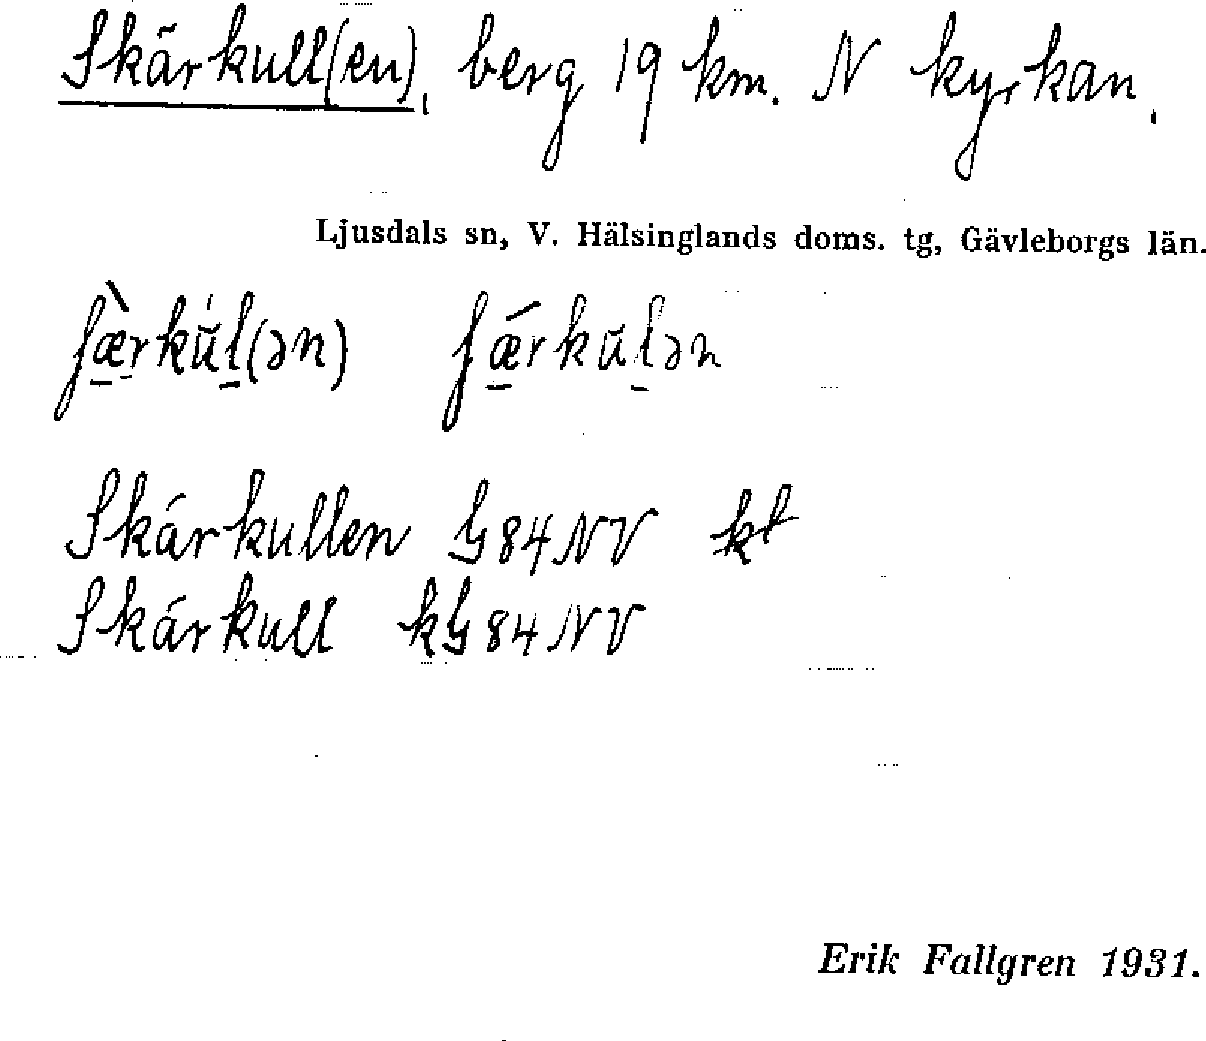 Skärkull(en), berg 19 km. N kyrkan.
Ljusdals sn, V. Hälsinglands doms. tg, Gävleborgs län.
ʃæ̀rkúl(ən) ʃǽrkŭlən
Skärkullen G84NV kt
Skärkull kG84NV
Erik Fallgren 1931.